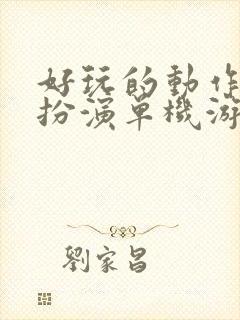 好玩的動作
扮演單機游
劉家昌